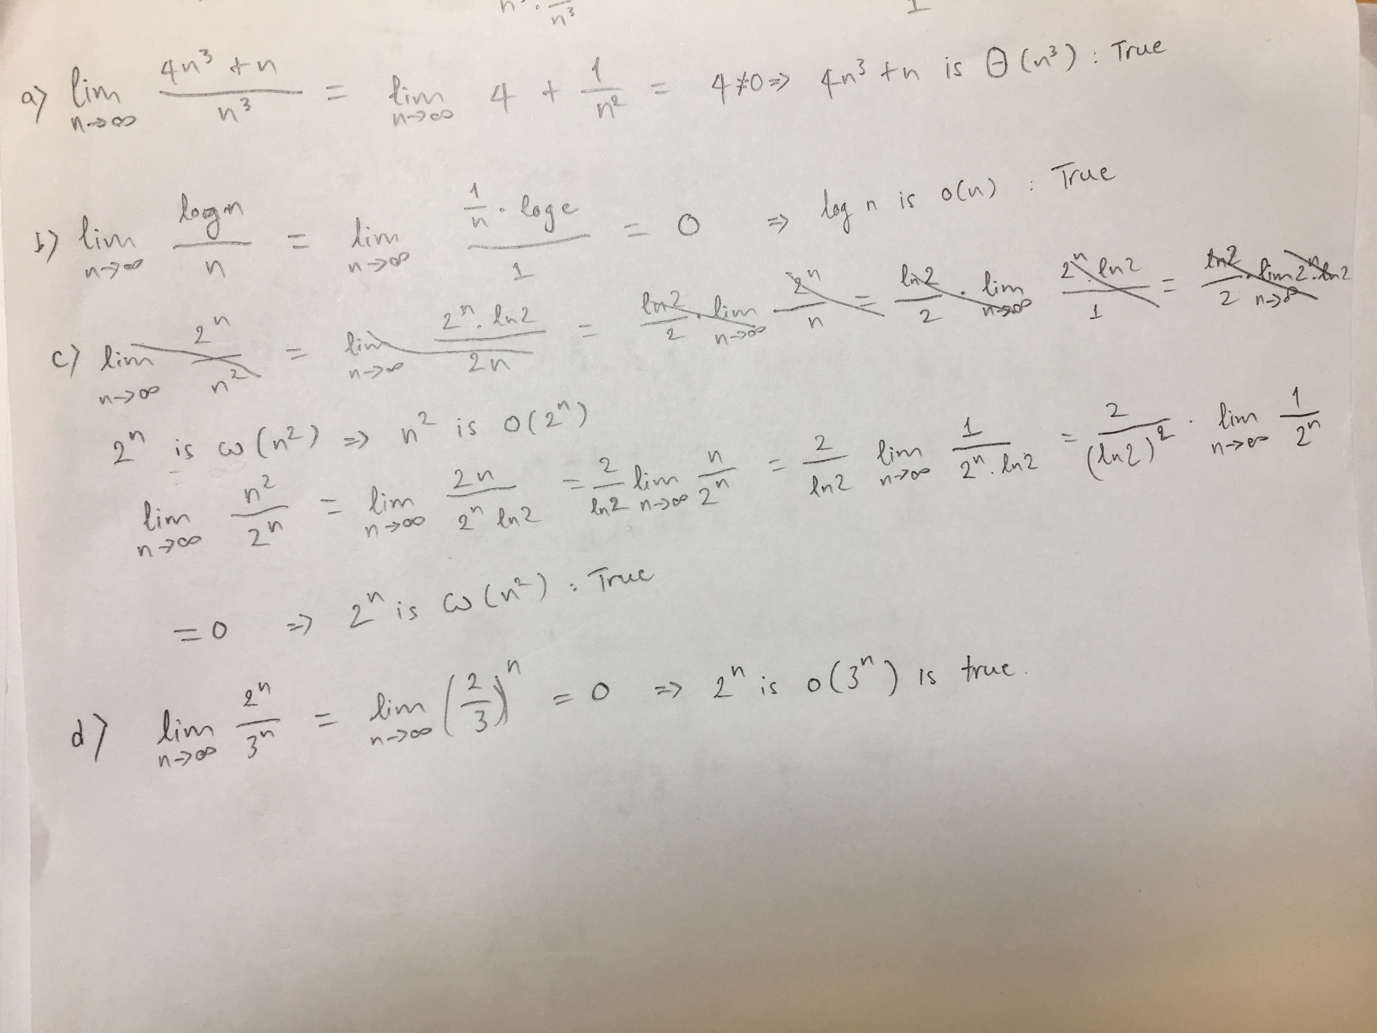 n³ · 1/n³ 1
a) lim n→∞ (4n³ + n)/n³ = lim n→∞ 4 + 1/n² = 4 ≠ 0 => 4n³ + n is Θ(n³) : True
b) lim n→∞ log n / n = lim n→∞ (1/n · log e)/1 = 0 => log n is o(n) : True
c) lim n→∞ 2ⁿ/n² = lim n→∞ (2ⁿ · ln2)/(2n) = ln2/2 · lim n→∞ 2ⁿ/n = ln2/2 · lim n→∞ (2ⁿ · ln2)/1 = ln2/2 · lim n→∞ 2ⁿ · ln2
2ⁿ is ω(n²) => n² is o(2ⁿ)
lim n→∞ n²/2ⁿ = lim n→∞ 2n/(2ⁿ ln2) = 2/ln2 lim n→∞ n/2ⁿ = 2/ln2 lim n→∞ 1/(2ⁿ · ln2) = 2/(ln2)² · lim n→∞ 1/2ⁿ
= 0 => 2ⁿ is ω(n²) : True
d) lim n→∞ 2ⁿ/3ⁿ = lim n→∞ (2/3)ⁿ = 0 => 2ⁿ is o(3ⁿ) is true.